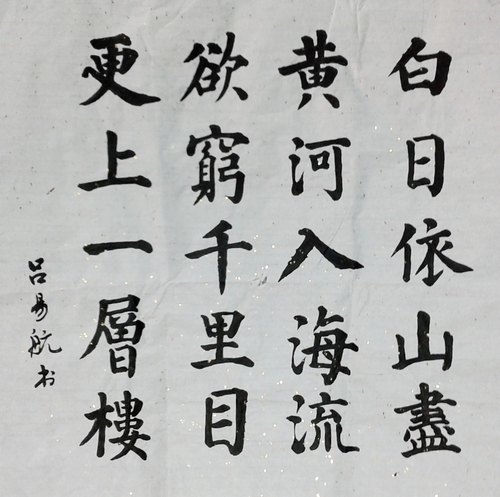 白日依山盡
黄河入海流
欲窮千里目
更上一層樓
吕易航书